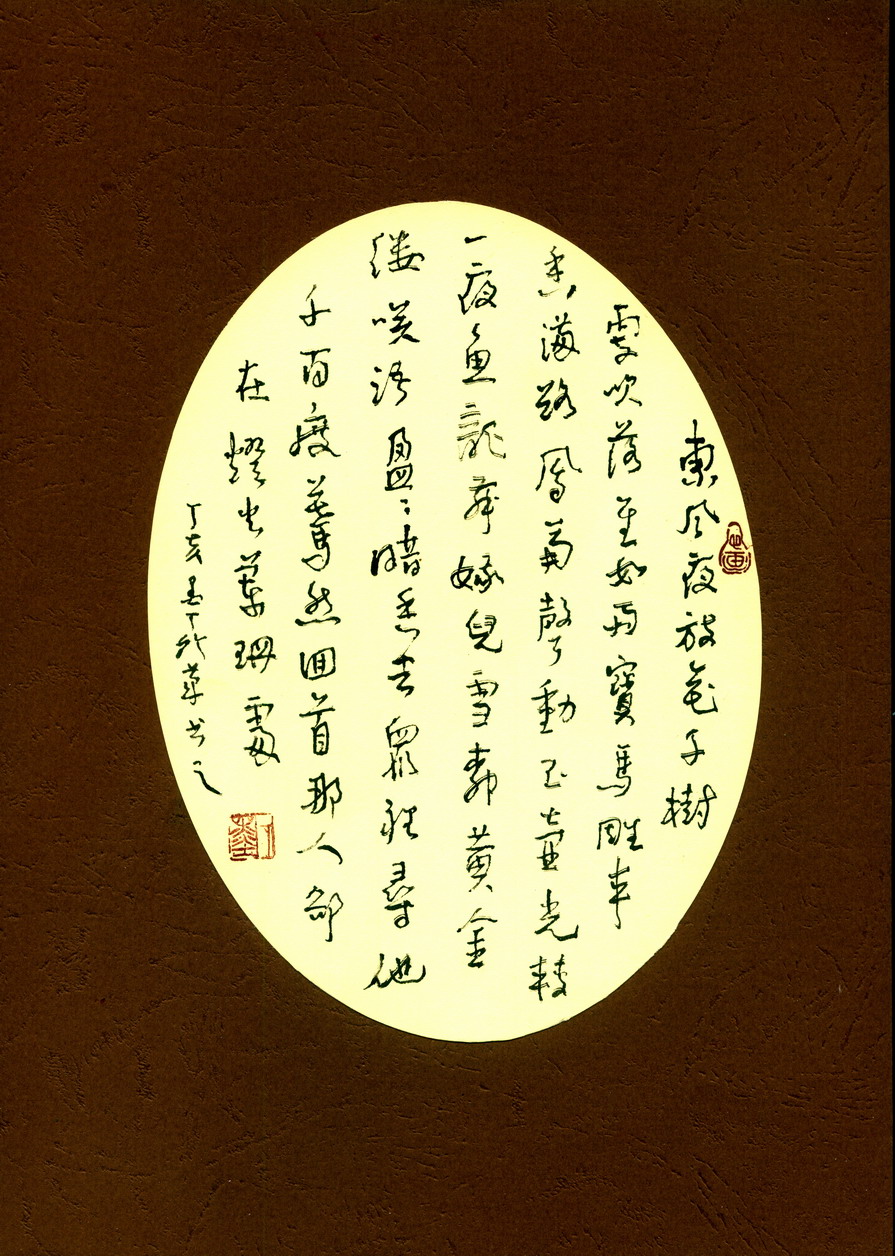 東風夜放花千樹
更吹落星如雨寶馬雕車
香滿路鳳簫聲動玉壺光轉
一夜魚龍舞蛾兒雪柳黃金
縷咲語盈々暗香去眾裡尋他
千百度驀然囬首那人卻
在燈火闌珊處
丁亥